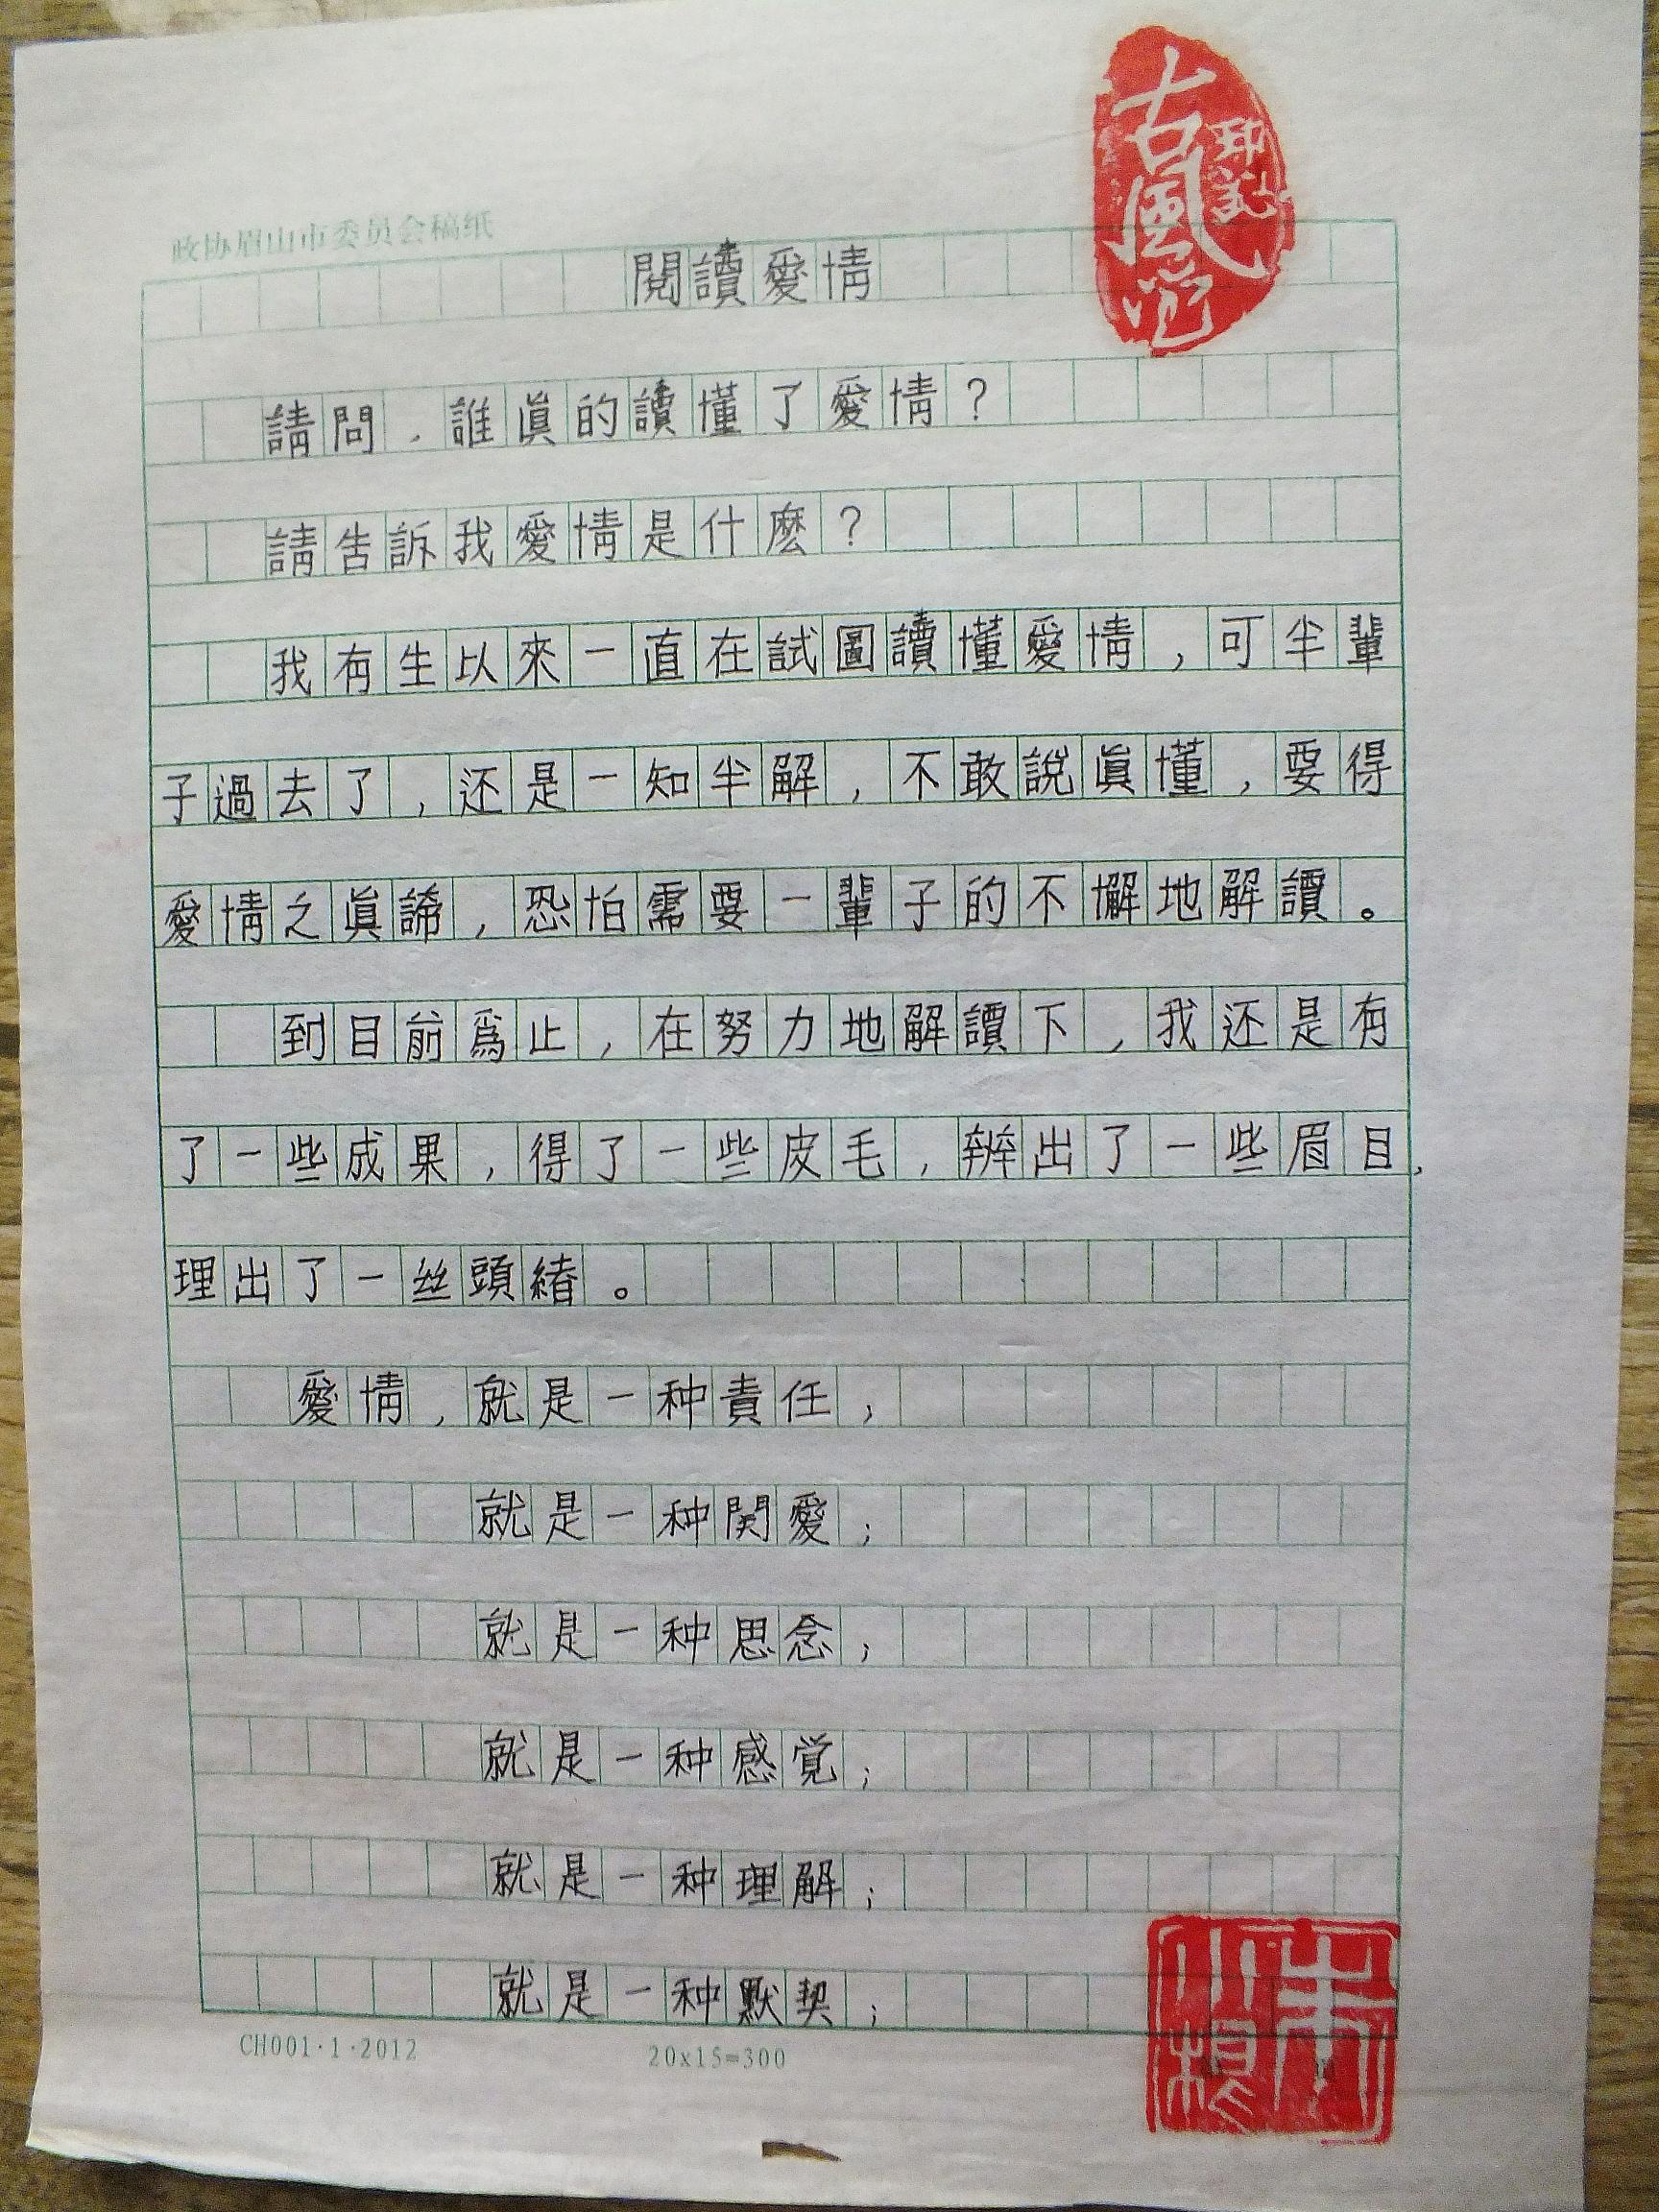 古風
印記
政协眉山市委员会稿纸
閱讀愛情
請問，誰真的讀懂了愛情？
請告訴我愛情是什麽？
我有生以來一直在試圖讀懂愛情，可半輩
子過去了，还是一知半解，不敢說真懂，要得
愛情之真諦，恐怕需要一輩子的不懈地解讀。
到目前爲止，在努力地解讀下，我还是有
了一些成果，得了一些皮毛，辨出了一些眉目，
理出了一丝頭緒。
愛情，就是一种責任；
就是一种関愛；
就是一种思念；
就是一种感覚；
就是一种理解；
就是一种默契；
CH001·1·2012
20x15=300